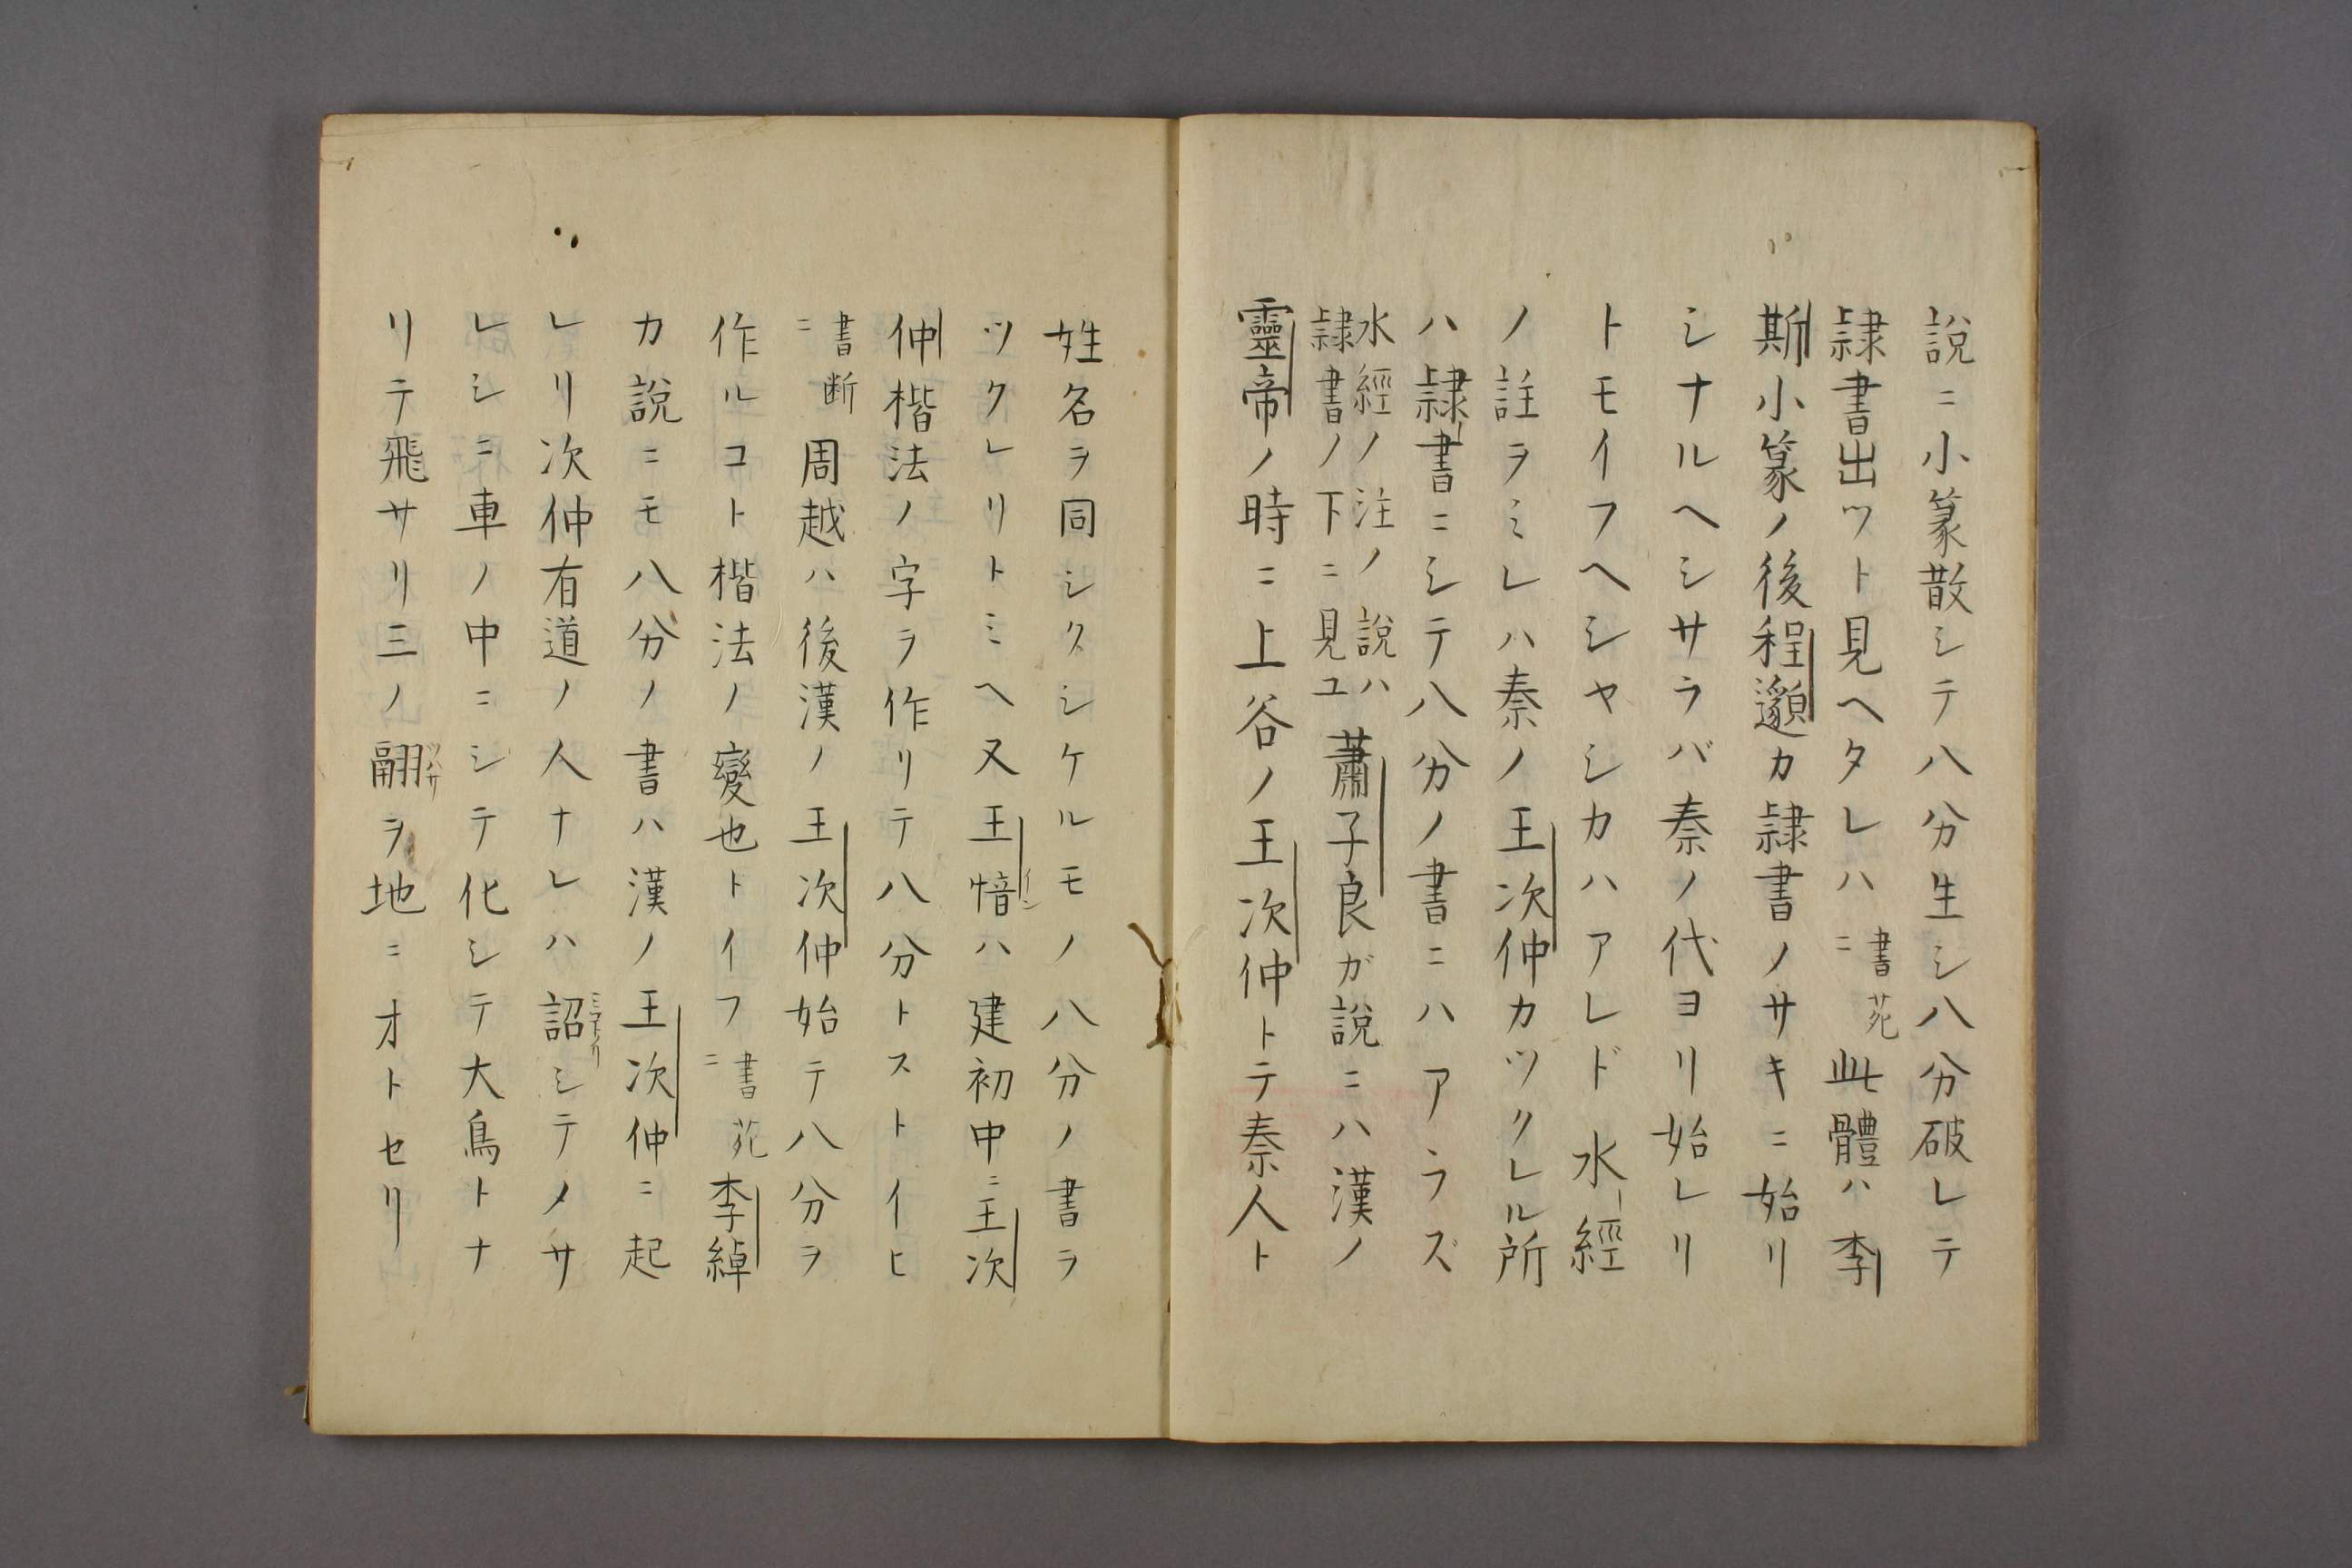 説ニ小篆散シテ八分生シ八分破レテ
隷書出ツト見ヘタレハ書苑ニ此體ハ李
斯小篆ノ後程邈カ隷書ノサキニ始リ
シナルヘシサラバ秦ノ代ヨリ始レリ
トモイフヘシヤシカハアレド水經
ノ註ヲミレハ秦ノ王次仲カツクレル所
ハ隷書ニシテ八分ノ書ニハアラズ
水經ノ注ノ説ハ
隷書ノ下ニ見ユ
蕭子良ガ説ニハ漢ノ
靈帝ノ時ニ上谷ノ王次仲トテ秦人ト
姓名ヲ同シクシケルモノ八分ノ書ヲ
ツクレリトミヘ又王愔イン ハ建初中ニ王次
仲楷法ノ字ヲ作リテ八分トストイヒ
書断ニ周越ハ後漢ノ王次仲始テ八分ヲ
作ルコト楷法ノ變也トイフ書苑ニ李綽
カ説ニモ八分ノ書ハ漢ノ王次仲ニ起
レリ次仲有道ノ人ナレハ詔ミコトノリシテメサ
レシニ車ノ中ニシテ化シテ大鳥トナ
リテ飛サリ三ノ翮ツハサヲ地ニオトセリ